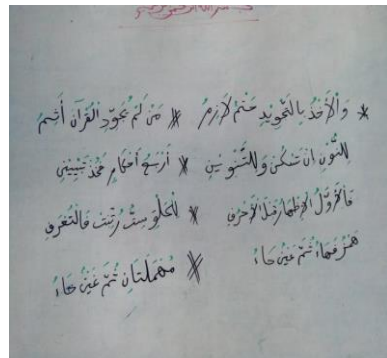 بسم الله الرحمن الرحيم
* وَالْأَخْذُ بِالتَّجْوِيدِ حَتْمٌ لَازِمُ * مَنْ لَمْ يُجَوِّدِ الْقُرْآنَ أَثِمُ
لِلنُّونِ إِنْ تَسْكُنْ وَلِلتَّنْوِينِ * أَرْبَعُ أَحْكَامٍ فَخُذْ تَبْيِينِي
فَالْأَوَّلُ الْإِظْهَارُ قَبْلَ الْأَحْرُفِ * لِلْحَلْقِ سِتٌّ رُتِّبَتْ فَالتُعْرَفِ
هَمْزٌ فَهَاءٌ ثُمَّ عَيْنٌ حَاءُ * مُهْمَلَتَانِ ثُمَّ غَيْنٌ خَاءُ